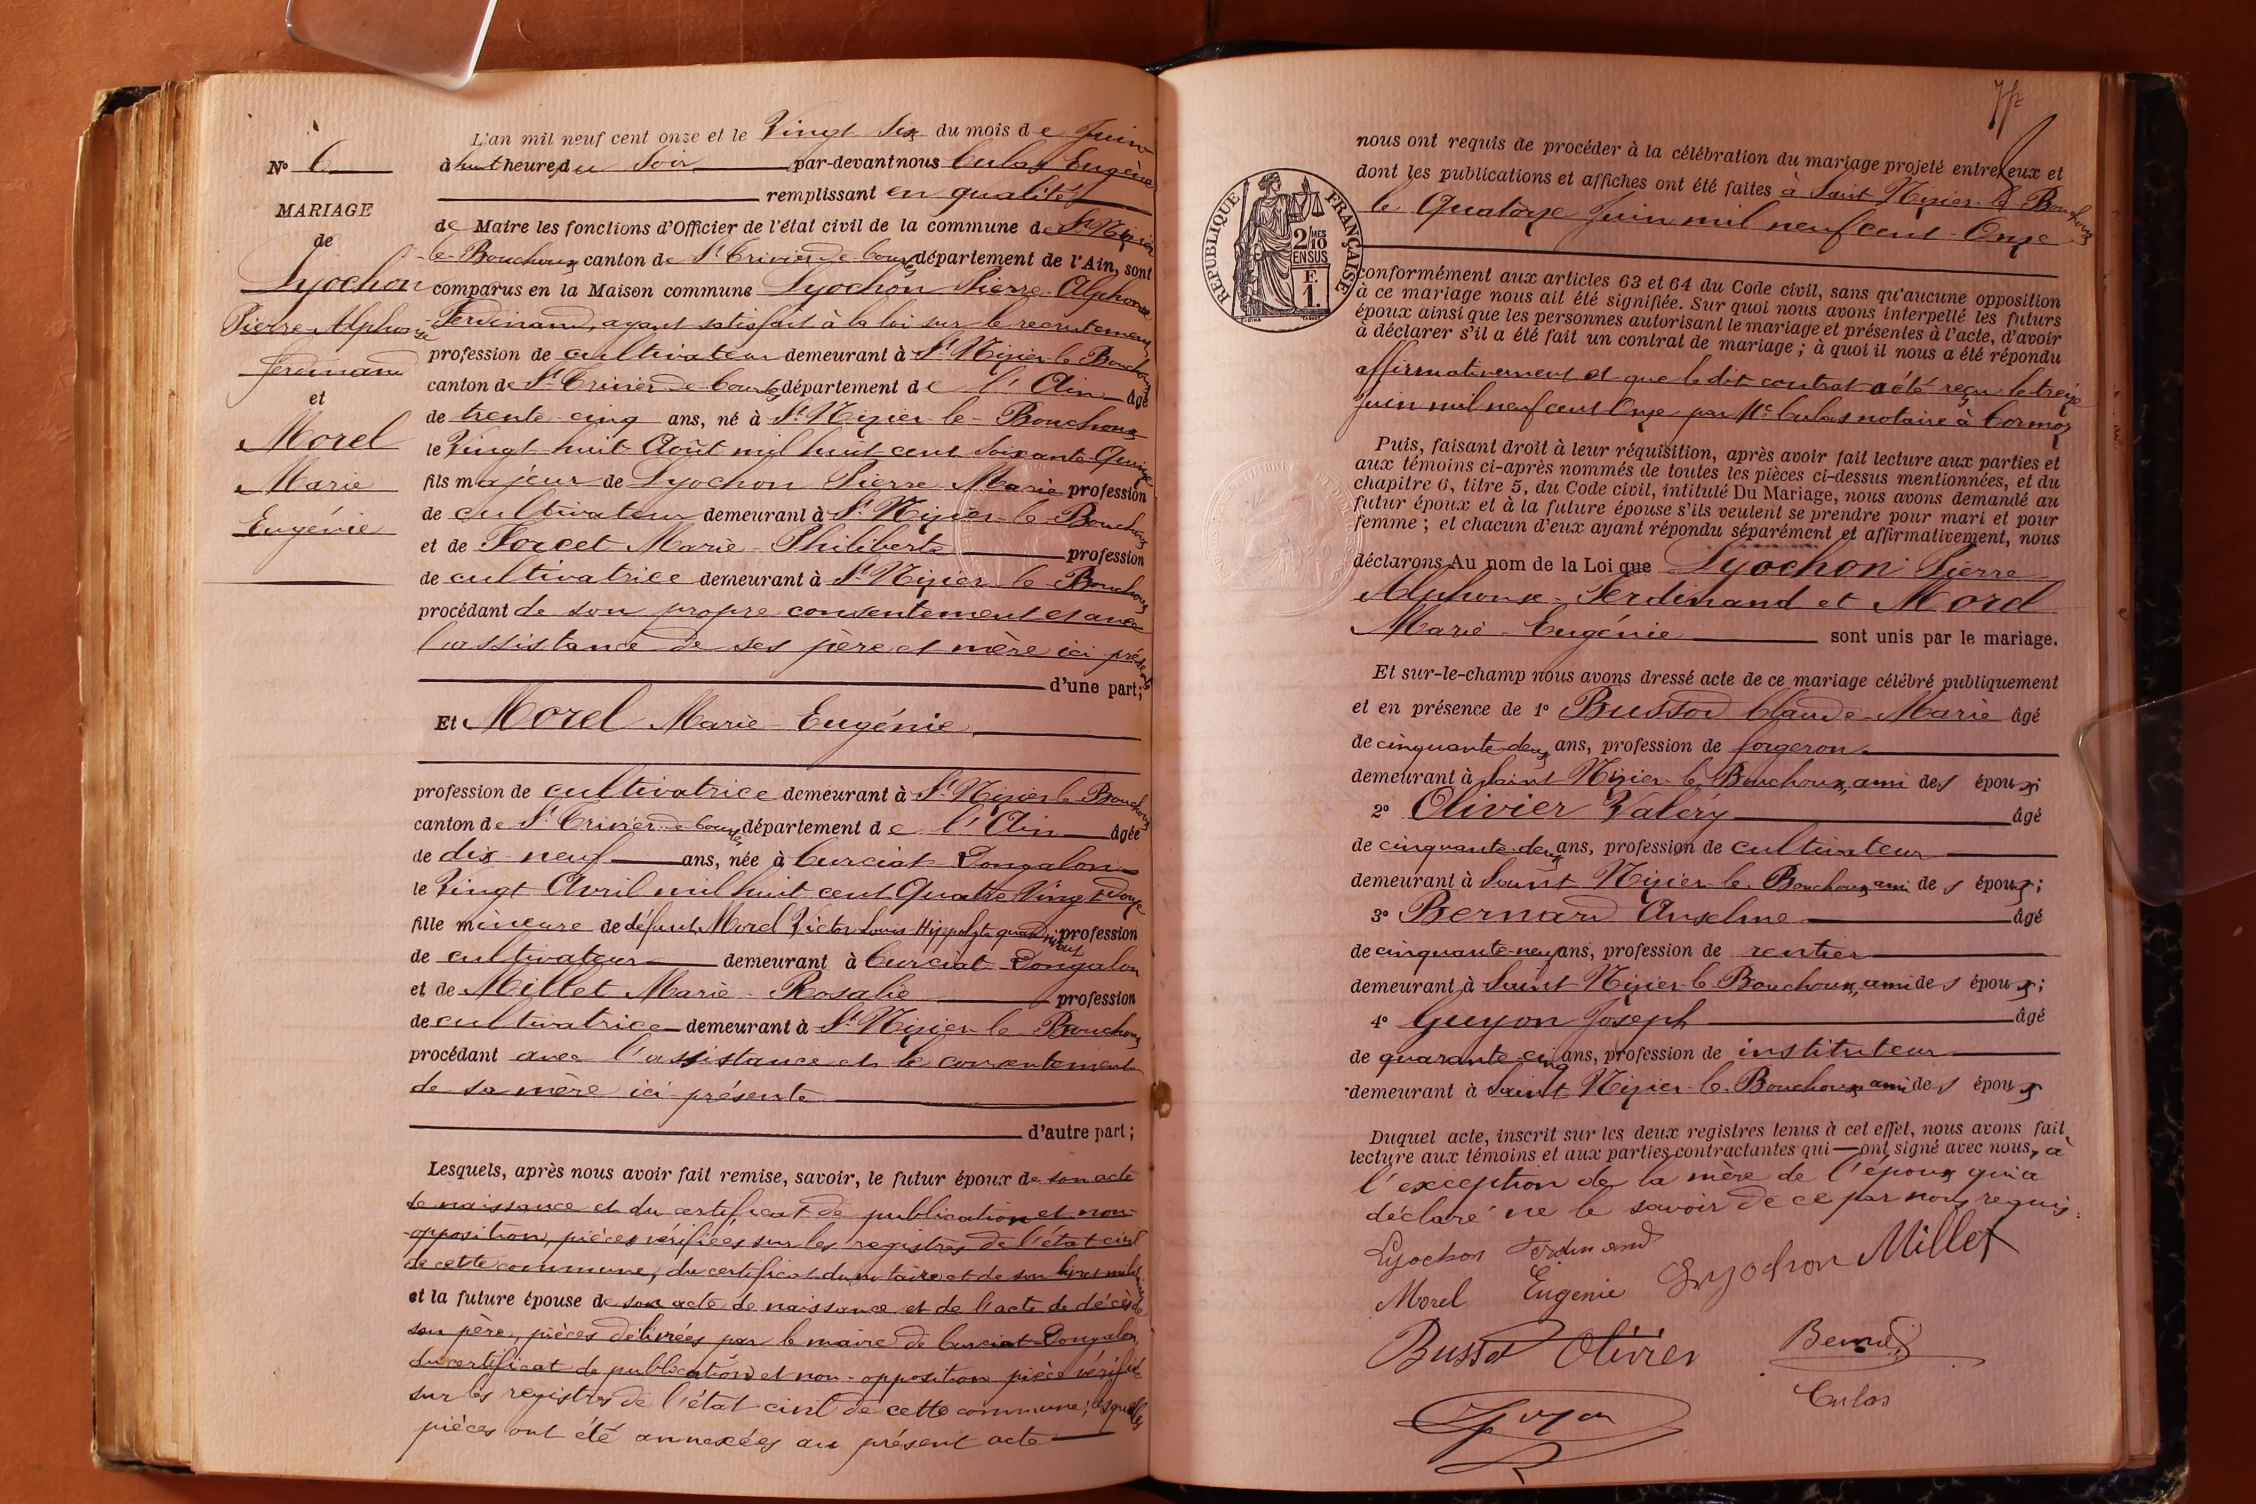 L'an mil neuf cent onze et le Vingt Six du mois de Juin
N° 6
à huit heures du Soir par-devant nous Culas Eugène
remplissant en qualité
MARIAGE
de Maire les fonctions d'Officier de l'état civil de la commune de St Nizier
de
le Bouchoux canton de St Trivier de Courtes département de l'Ain, sont
Lyochon
comparus en la Maison commune Lyochon Pierre-Alphonse
Pierre Alphonse
Ferdinand, ayant satisfait à la loi sur le recrutement
Ferdinand
profession de cultivateur demeurant à St Nizier-le-Bouchoux
canton de St Trivier-de-Courtes département de l'Ain âgé
et
de trente cinq ans, né à St Nizier-le-Bouchoux
Morel
le Vingt huit Août mil huit cent Soixante Quinze
Marie
fils majeur de Lyochon Pierre Marie profession
Eugénie
de cultivateur demeurant à St Nizier-le-Bouchoux
et de Marie-Philiberte profession
de cultivatrice demeurant à St Nizier le Bouchoux
procédant de son propre consentement et avec
l'assistance de ses père et mère ici présents
d'une part;
Et Morel Marie-Eugénie
profession de cultivatrice demeurant à St Nizier le Bouchoux
canton de St Trivier-de-Courtes département de l'Ain âgée
de dix-neuf ans, née à Curciat-Dongalon
le Vingt Avril mil huit cent Quatre Vingt douze
fille mineure de défunt Morel Victor Louis Hippolyte quand vivait profession
de cultivateur demeurant à Curciat-Dongalon
et de Millet Marie-Rosalie profession
de cultivatrice demeurant à St Nizier-le Bouchoux
procédant avec l'assistance et le consentement
de sa mère ici présente
d'autre part;
Lesquels, après nous avoir fait remise, savoir, le futur époux de son acte
de naissance et du certificat de publication et non-
opposition, pièces vérifiées sur les registres de l'état civil
de cette commune, du certificat du notaire et de son livret militaire
et la future épouse de son acte de naissance et de l'acte de décès de
son père, pièces délivrées par le maire de Curciat-Dongalon,
du certificat de publication et non-opposition pièce vérifiée
sur les registres de l'état civil de cette commune; lesquelles
pièces ont été annexées au présent acte
nous ont requis de procéder à la célébration du mariage projeté entre eux et
dont les publications et affiches ont été faites à Saint Nizier-le-Bouchoux
le Quatorze Juin mil neuf cent Onze
RÉPUBLIQUE FRANÇAISE
2/10 MES
EN SUS
F.
1.
conformément aux articles 63 et 64 du Code civil, sans qu'aucune opposition
à ce mariage nous ait été signifiée. Sur quoi nous avons interpellé les futurs
époux ainsi que les personnes autorisant le mariage et présentes à l'acte, d'avoir
à déclarer s'il a été fait un contrat de mariage; à quoi il nous a été répondu
affirmativement et que le dit contrat a été reçu le treize
Juin mil neuf cent Onze par Me Culas notaire à Cormoz
Puis, faisant droit à leur réquisition, après avoir fait lecture aux parties et
aux témoins ci-après nommés de toutes les pièces ci-dessus mentionnées, et du
chapitre 6, titre 5, du Code civil, intitulé Du Mariage, nous avons demandé au
futur époux et à la future épouse s'ils veulent se prendre pour mari et pour
femme; et chacun d'eux ayant répondu séparément et affirmativement, nous
déclarons Au nom de la Loi que Lyochon Pierre-
Alphonse-Ferdinand et Morel
Marie-Eugénie sont unis par le mariage.
Et sur-le-champ nous avons dressé acte de ce mariage célébré publiquement
et en présence de 1° Bussod Claude-Marie âgé
de cinquante-deux ans, profession de forgeron
demeurant à Saint Nizier-le-Bouchoux, ami des époux;
2° Olivier Valéry âgé
de cinquante-deux ans, profession de cultivateur
demeurant à Saint Nizier-le-Bouchoux ami des époux;
3° Bernard Anselme âgé
de cinquante-neuf ans, profession de rentier
demeurant à Saint-Nizier-le Bouchoux, ami des époux;
4° Guyon Joseph âgé
de quarante-cinq ans, profession de instituteur
demeurant à Saint Nizier-le-Bouchoux ami des époux
Duquel acte, inscrit sur les deux registres tenus à cet effet, nous avons fait
lecture aux témoins et aux parties contractantes qui ont signé avec nous, à
l'exception de la mère de l'époux qui a
déclaré ne le savoir de ce par nous requis.
Lyochon Ferdinand
Lyochon Millet
Morel Eugenie
Bussod Olivier Bernard
Culas
Guyon